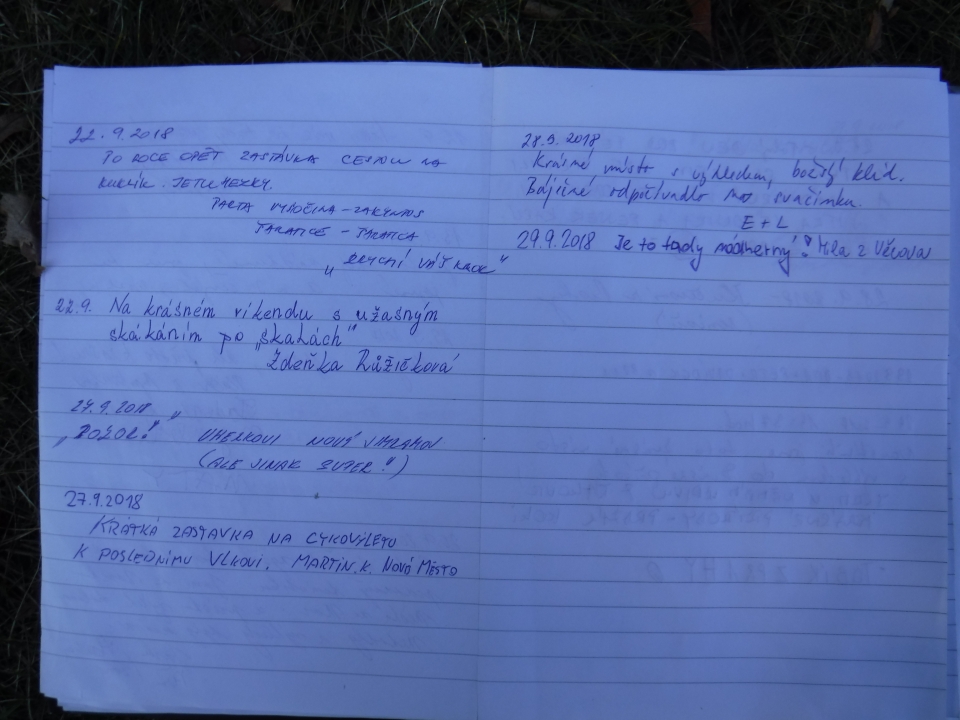 22.9.2018
PO ROCE OPĚT ZASTÁVKA CESTOU NA
KUKLÍK. JE TU HEZKY.
PARTA VYSOČINA - ZAKYNTOS
22.9. Na krásném víkendu s užasným
skákáním po „skalách"
Zdeňka Růžičková
27.9.2018
„POZOR!" UHERKOVI NOVÝ JIMRAMOV
(ALE JINAK SUPER!")
27.9.2018
KRÁTKÁ ZASTAVKA NA CYKOVÝLETU
K POSLEDNÍMU VLKOVI. MARTIN.K. NOVÉ MĚSTO
28.9.2018
Krásné místo s výhledem, božský klid.
Báječné odpočívadlo na svačinku.
E + L
29.9.2018 Je to tady nádherný! Míla z Věcova